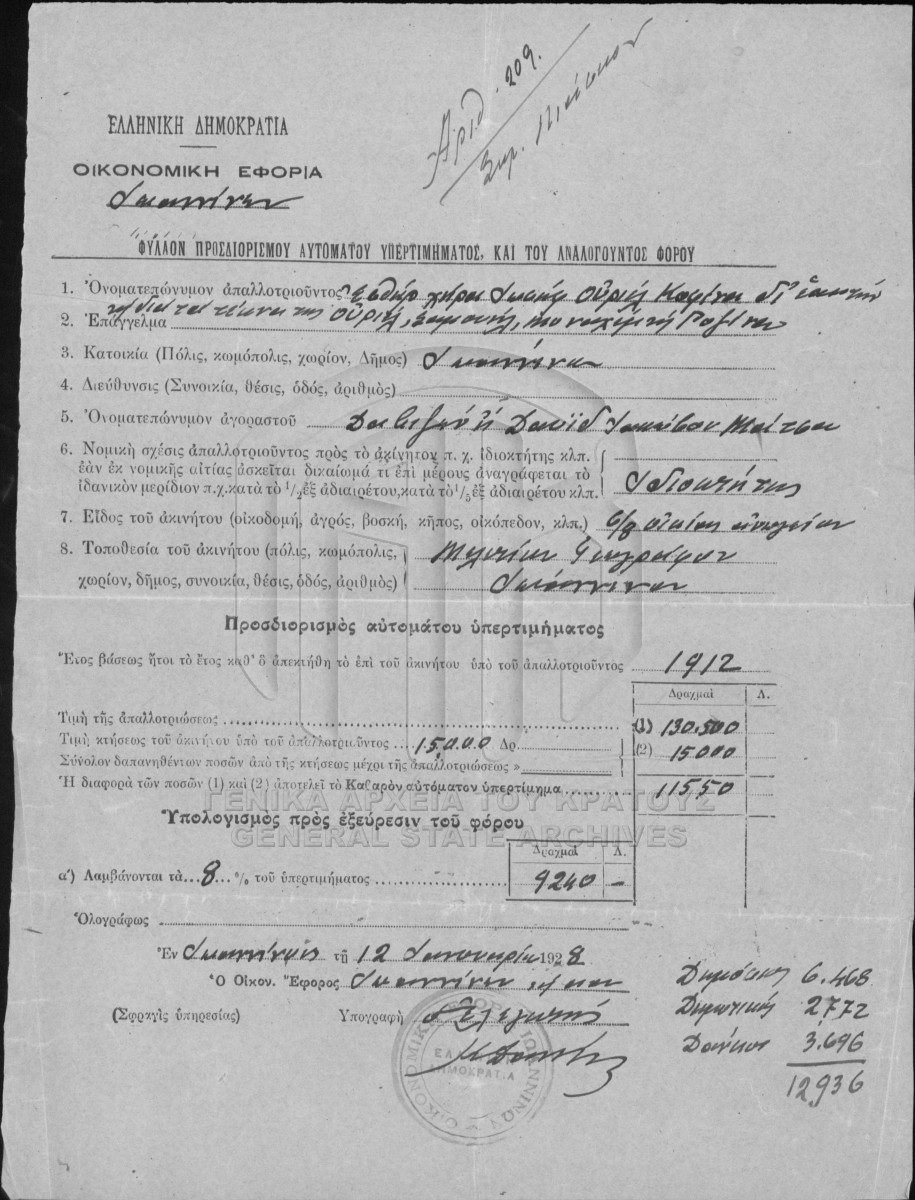 Αριθ. 209.
ΕΛΛΗΝΙΚΗ ΔΗΜΟΚΡΑΤΙΑ
ΟΙΚΟΝΟΜΙΚΗ ΕΦΟΡΙΑ
Ιωαννίνων
ΦΥΛΛΟΝ ΠΡΟΣΔΙΟΡΙΣΜΟΥ ΑΥΤΟΜΑΤΟΥ ΥΠΕΡΤΙΜΗΜΑΤΟΣ, ΚΑΙ ΤΟΥ ΑΝΑΛΟΓΟΥΝΤΟΣ ΦΟΡΟΥ
1. Ὀνοματεπώνυμον ἀπαλλοτριοῦντος Εσθήρ χήρα Ιωσήφ Οὐριήλ Κοφίνα δι' ἑαυτήν
καί διά τά τέκνα της Οὐριήλ, Σαμουήλ,
2. Ἐπάγγελμα
3. Κατοικία (Πόλις, κωμόπολις, χωρίον, Δῆμος) Ιωάννινα
4. Διεύθυνσις (Συνοικία, θέσις, ὁδός, ἀριθμὸς)
5. Ὀνοματεπώνυμον ἀγοραστοῦ Δαυΐδ Ιακώβου Μάτσα
6. Νομικὴ σχέσις ἀπαλλοτριοῦντος πρὸς τὸ ἀκίνητον π. χ. ἰδιοκτήτης κλπ.
ἐὰν ἐκ νομικῆς αἰτίας ἀσκεῖται δικαίωμά τι ἐπὶ μέρους ἀναγράφεται τὸ
ἰδανικὸν μερίδιον π.χ. κατὰ τὸ 1/2 ἐξ ἀδιαιρέτου, κατὰ τὸ 1/5 ἐξ ἀδιαιρέτου κλπ. Ιδιοκτήτης
7. Εἶδος τοῦ ἀκινήτου (οἰκοδομή, ἀγρός, βοσκή, κῆπος, οἰκόπεδον, κλπ.)
8. Τοποθεσία τοῦ ἀκινήτου (πόλις, κωμόπολις,
χωρίον, δῆμος, συνοικία, θέσις, ὁδός, ἀριθμὸς) Ιωάννινα
Προσδιορισμὸς αὐτομάτου ὑπερτιμήματος
Ἔτος βάσεως ἤτοι τὸ ἔτος καθ' ὃ ἀπεκτήθη τὸ ἐπὶ τοῦ ἀκινήτου ὑπὸ τοῦ ἀπαλλοτριοῦντος 1912
Δραχμαὶ Λ.
Τιμὴ τῆς ἀπαλλοτριώσεως (1) 130.500
Τιμὴ κτήσεως τοῦ ἀκινήτου ὑπὸ τοῦ ἀπαλλοτριοῦντος 15.000 Δρ. (2) 15000
Σύνολον δαπανηθέντων ποσῶν ἀπὸ τῆς κτήσεως μέχρι τῆς ἀπαλλοτριώσεως »
Ἡ διαφορὰ τῶν ποσῶν (1) καὶ (2) ἀποτελεῖ τὸ Καθαρὸν αὐτόματον ὑπερτίμημα 11550
ΓΕΝΙΚΑ ΑΡΧΕΙΑ ΤΟΥ ΚΡΑΤΟΥΣ
GENERAL STATE ARCHIVES
Ὑπολογισμὸς πρὸς ἐξεύρεσιν τοῦ φόρου
Δραχμαὶ Λ.
α') Λαμβάνονται τὰ 8 % τοῦ ὑπερτιμήματος 9240 –
Ὁλογράφως
Ἐν Ιωαννίνοις τῇ 12 Ιανουαρίου 1928
Ὁ Οἰκον. Ἔφορος Ιωαννίνων
(Σφραγὶς ὑπηρεσίας) Ὑπογραφὴ
ΟΙΚΟΝΟΜΙΚΗ ΕΦΟΡΙΑ ΙΩΑΝΝΙΝΩΝ
ΕΛΛΗΝΙΚΗ ΔΗΜΟΚΡΑΤΙΑ
Δημόσιον 6.468
Δημοτικός 2772
Δάνειον 3.696
12936